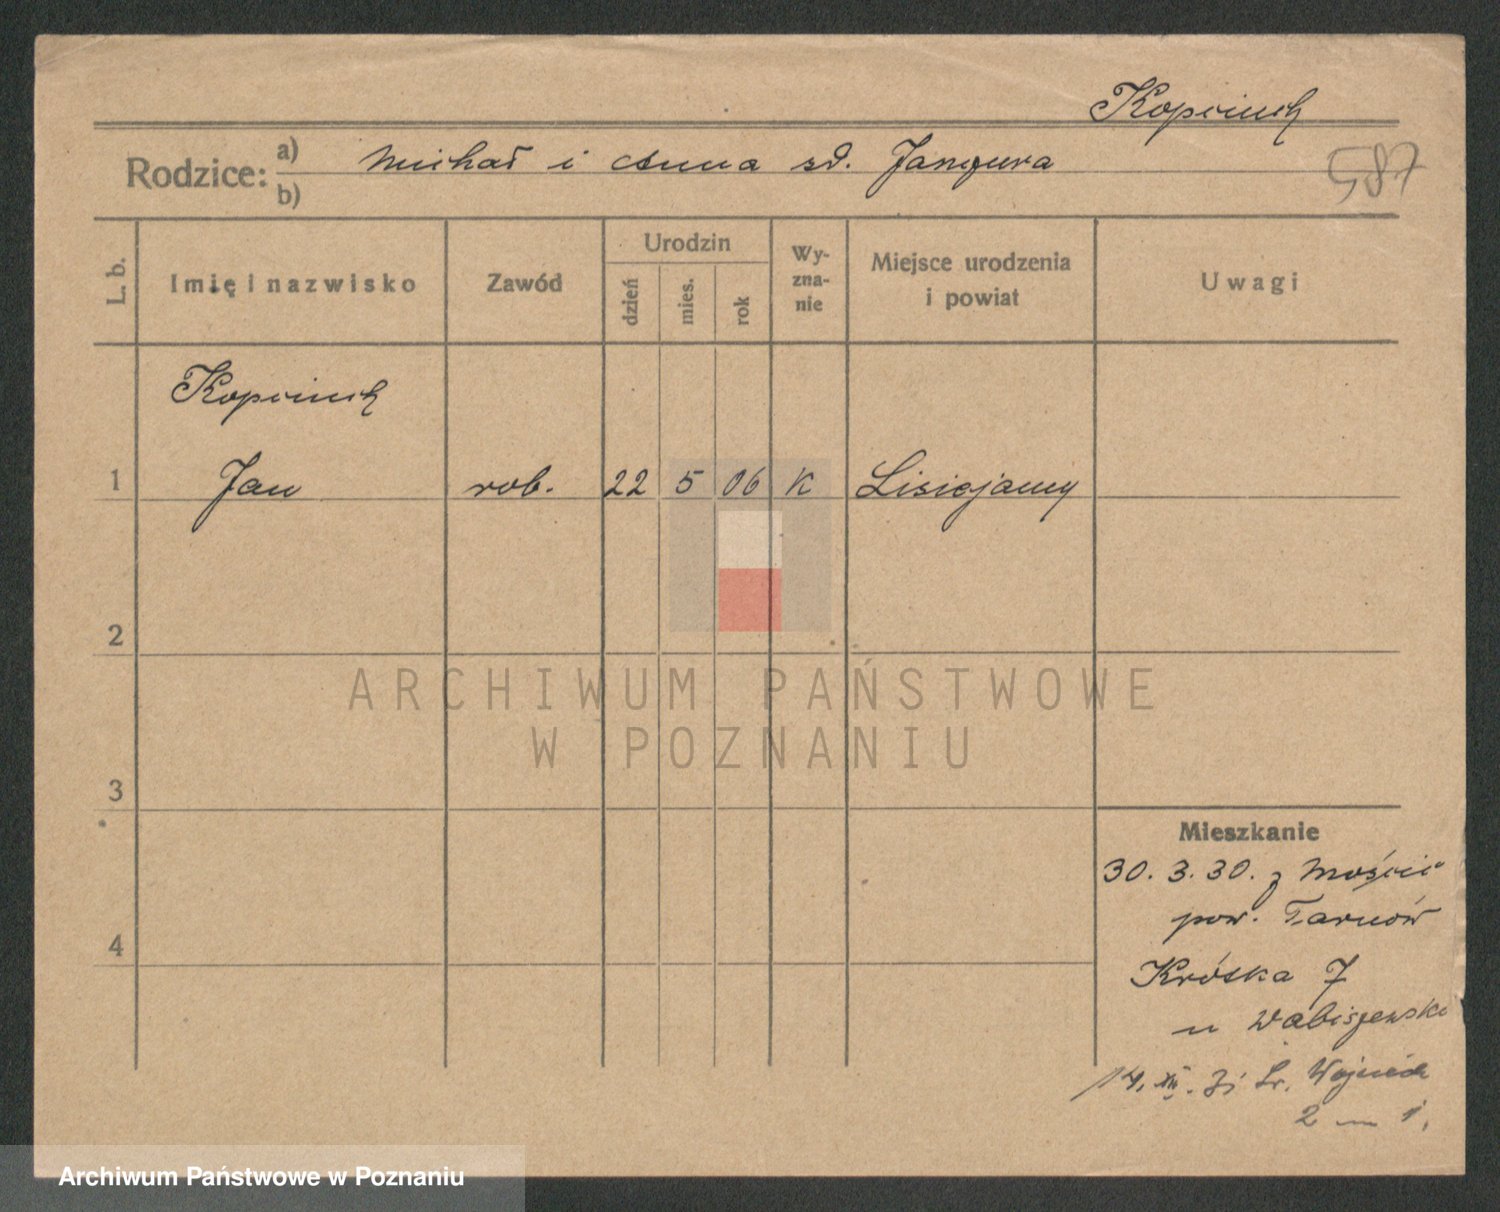 Kopciuch
Rodzice: a) Michał i Anna zd. Jangura
b)
587
L. b. Imię i nazwisko Zawód Urodzin dzień mies. rok Wyzna-nie Miejsce urodzenia i powiat Uwagi
Kopciuch
1 Jan rob. 22 5 06 K Lisiejamy
2
3
4
ARCHIWUM PAŃSTWOWE
W POZNANIU
Mieszkanie
30. 3. 30. z Mościc
pow. Tarnów
Krótka 7
u Wabiszewski
14. XII. Św. Wojciech
2 — 1.
Archiwum Państwowe w Poznaniu